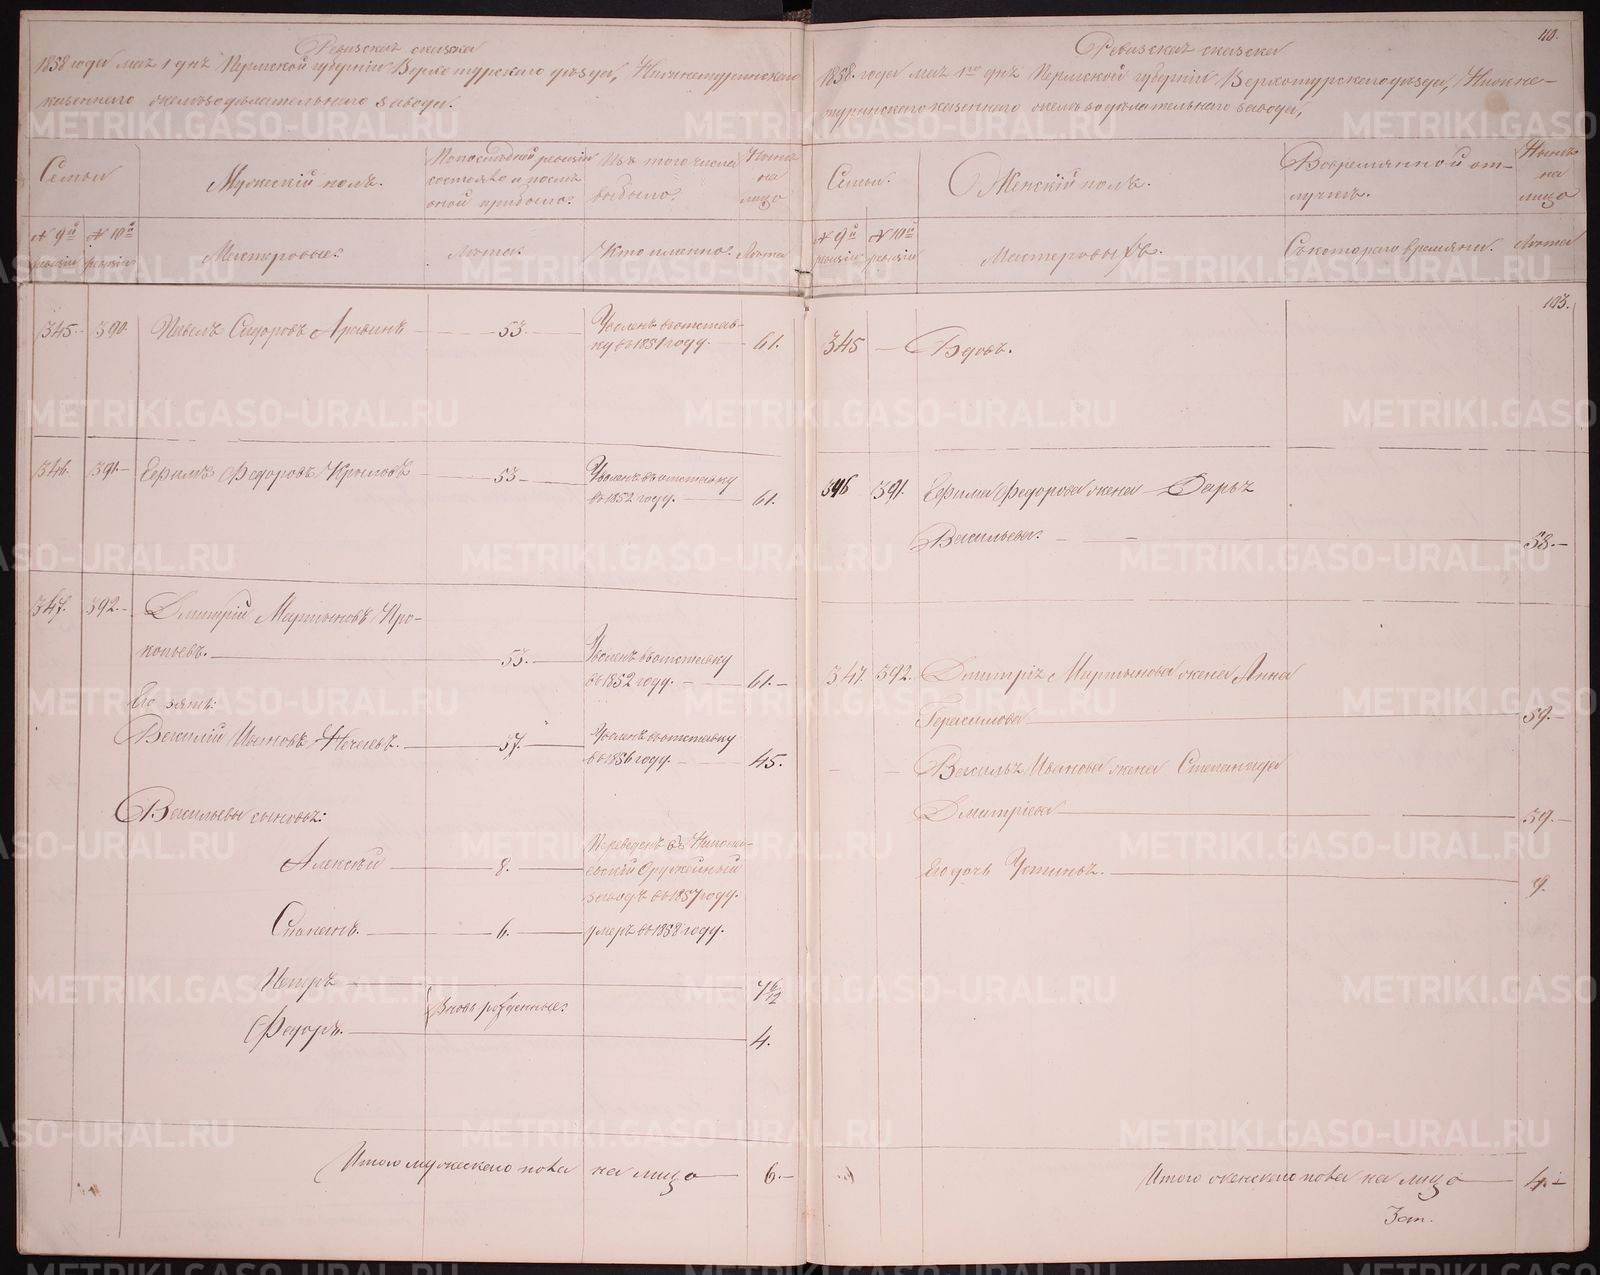 Ревизская сказка
1858 года мая 1 дня Пермской губернии Верхотурского уезда, Нижнетуринского
казенного железоделательного завода.
Семьи
Мужеский полъ.
По последней ревизии
состояло и после
оной прибыло:
Изъ того числа
выбыло:
Ныне
на
лицо
№ 9й
ревизіи
№ 10й
ревизіи
Мастеровые:
Лета:
Кто именно:
Лета
345. 390. Сидоровъ 53. Уволенъ въ отстав-
ку въ 1851 году. 61.
346. 391. Ефимъ Федоровъ Крыловъ 53. Уволенъ въ отставку
въ 1852 году. 61.
347. 392. Дмитрій Мартыновъ Про-
копьевъ. 53. Уволенъ въ отставку
въ 1852 году. 61.
Его зять:
Василій Ивановъ Нечаевъ. 37. Уволенъ въ отставку
въ 1856 году. 45.
Васильевы сыновья:
Алексей 8. Переведенъ въ
Оружейный
заводъ въ 1857 году.
6. умеръ въ 1858 году.
Петръ 7 6/12
Вновь рожденные:
Федоръ. 4.
Итого мужеского пола на лицо 6.
40.
Ревизская сказка
1858 года мая 1го дня Пермской губерніи Верхотурского уезда, Нижне-
туринского казенного железоделательного завода,
Семьи.
Женскій полъ.
Во временной от-
лучке.
Ныне
на
лицо
№ 9й
ревизіи
№ 10й
ревизіи
Мастеровыхъ.
Съ которого времяни.
Лета
103.
345 Вдовъ.
346 391. Ефима Федорова жена Дарья
Васильева. 58.
347. 392. Дмитрія Мартынова жена Анна
Герасимова 59.
Василья Иванова жена Степанида
Дмитріева 39.
Его дочь Устинья. 9.
Итого женского пола на лицо 4.
METRIKI.GASO-URAL.RU